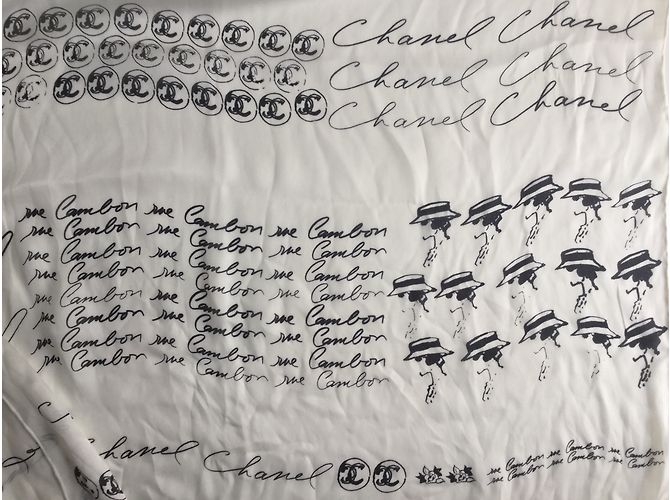 Chanel Chanel
Chanel Chanel
Chanel Chanel
rue Cambon rue Cambon rue Cambon
rue Cambon rue Cambon rue Cambon
rue Cambon rue Cambon rue Cambon
rue Cambon rue Cambon rue Cambon
rue Cambon rue Cambon rue Cambon
rue Cambon rue Cambon rue Cambon
rue Cambon rue Cambon rue Cambon
rue Cambon rue Cambon rue Cambon
Chanel Chanel
rue Cambon rue Cambon rue Cambon
rue Cambon rue Cambon rue Cambon